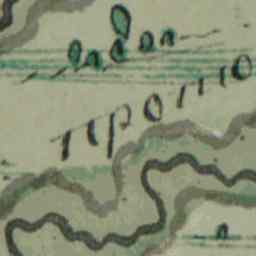 прото